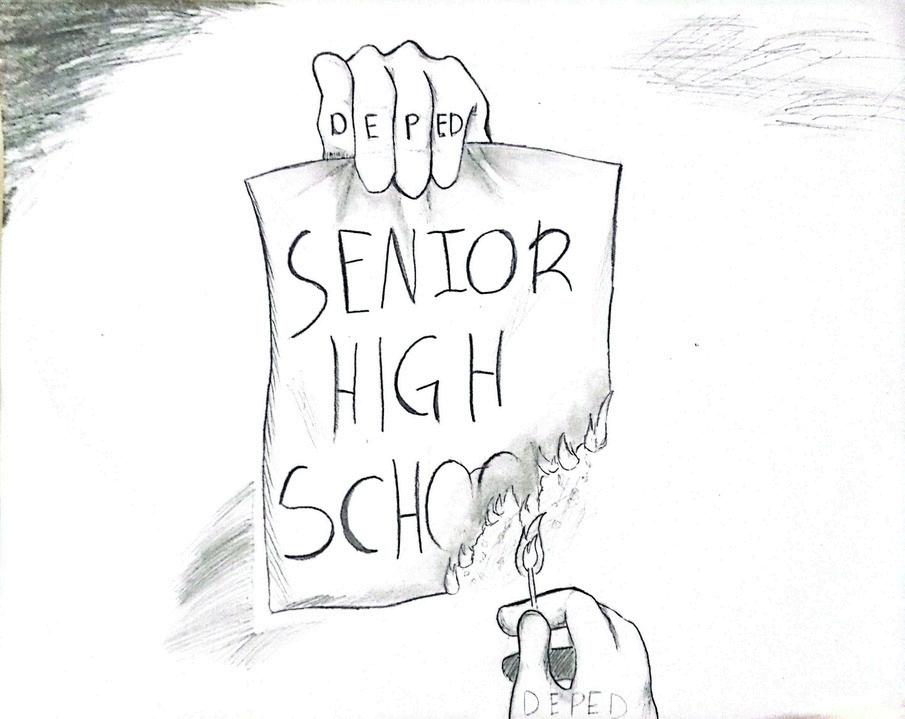 DEPED
SENIOR
HIGH
SCHOO
DEPED